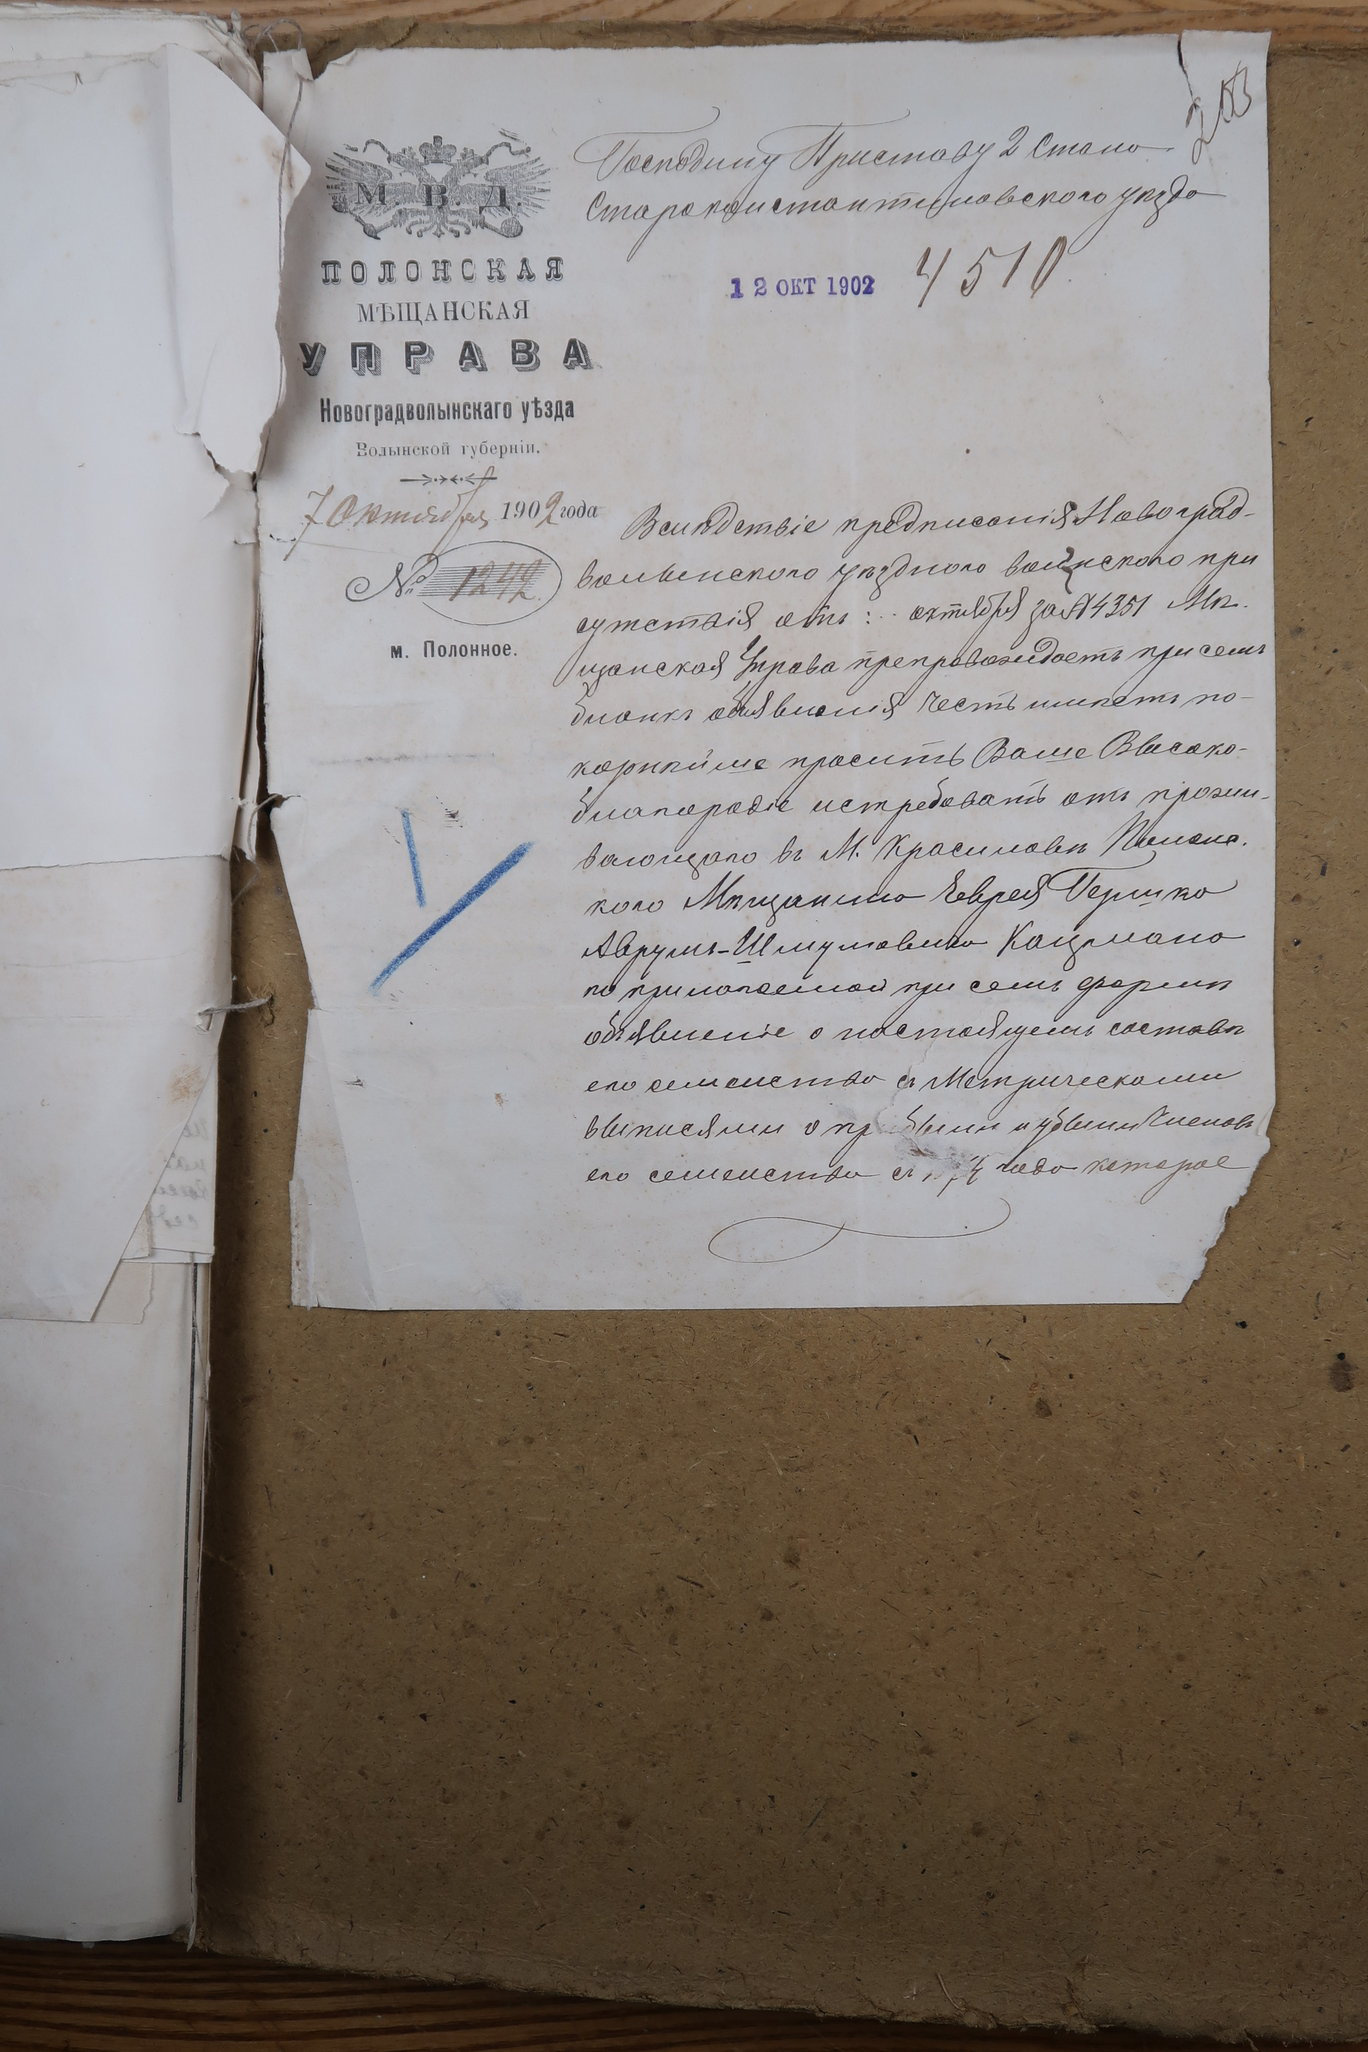 М. В. Д.
ПОЛОНСКАЯ
МѢЩАНСКАЯ
УПРАВА
Новоградволынскаго уѣзда
Волынской губерніи.
7 Октября 1902 года
№ 1242
м. Полонное.
Господину Приставу 2 Стана
Староконстантиновского уѣзда
12 ОКТ 1902 4510
Вслѣдствіе предписанія Новоград-
волынского уѣздного воинского при
сутствія отъ : октября за № 4351 Мѣ-
щанская Управа препровождаетъ при семъ
бланкъ объявленія честь имѣетъ по-
корнѣйше просить Ваше Высоко-
благородіе истребовать отъ прожи-
вающаго въ М. Красиловѣ Полонс-
кого Мѣщанина Еврея Гершка
Аврумъ-Шмулевича Кацмана
по прилагаемой при семъ формѣ
объявленіе о настоящемъ составѣ
его семейства съ Метрическими
выписями о пр былии и убыли Членовъ
его семейства съ года которое